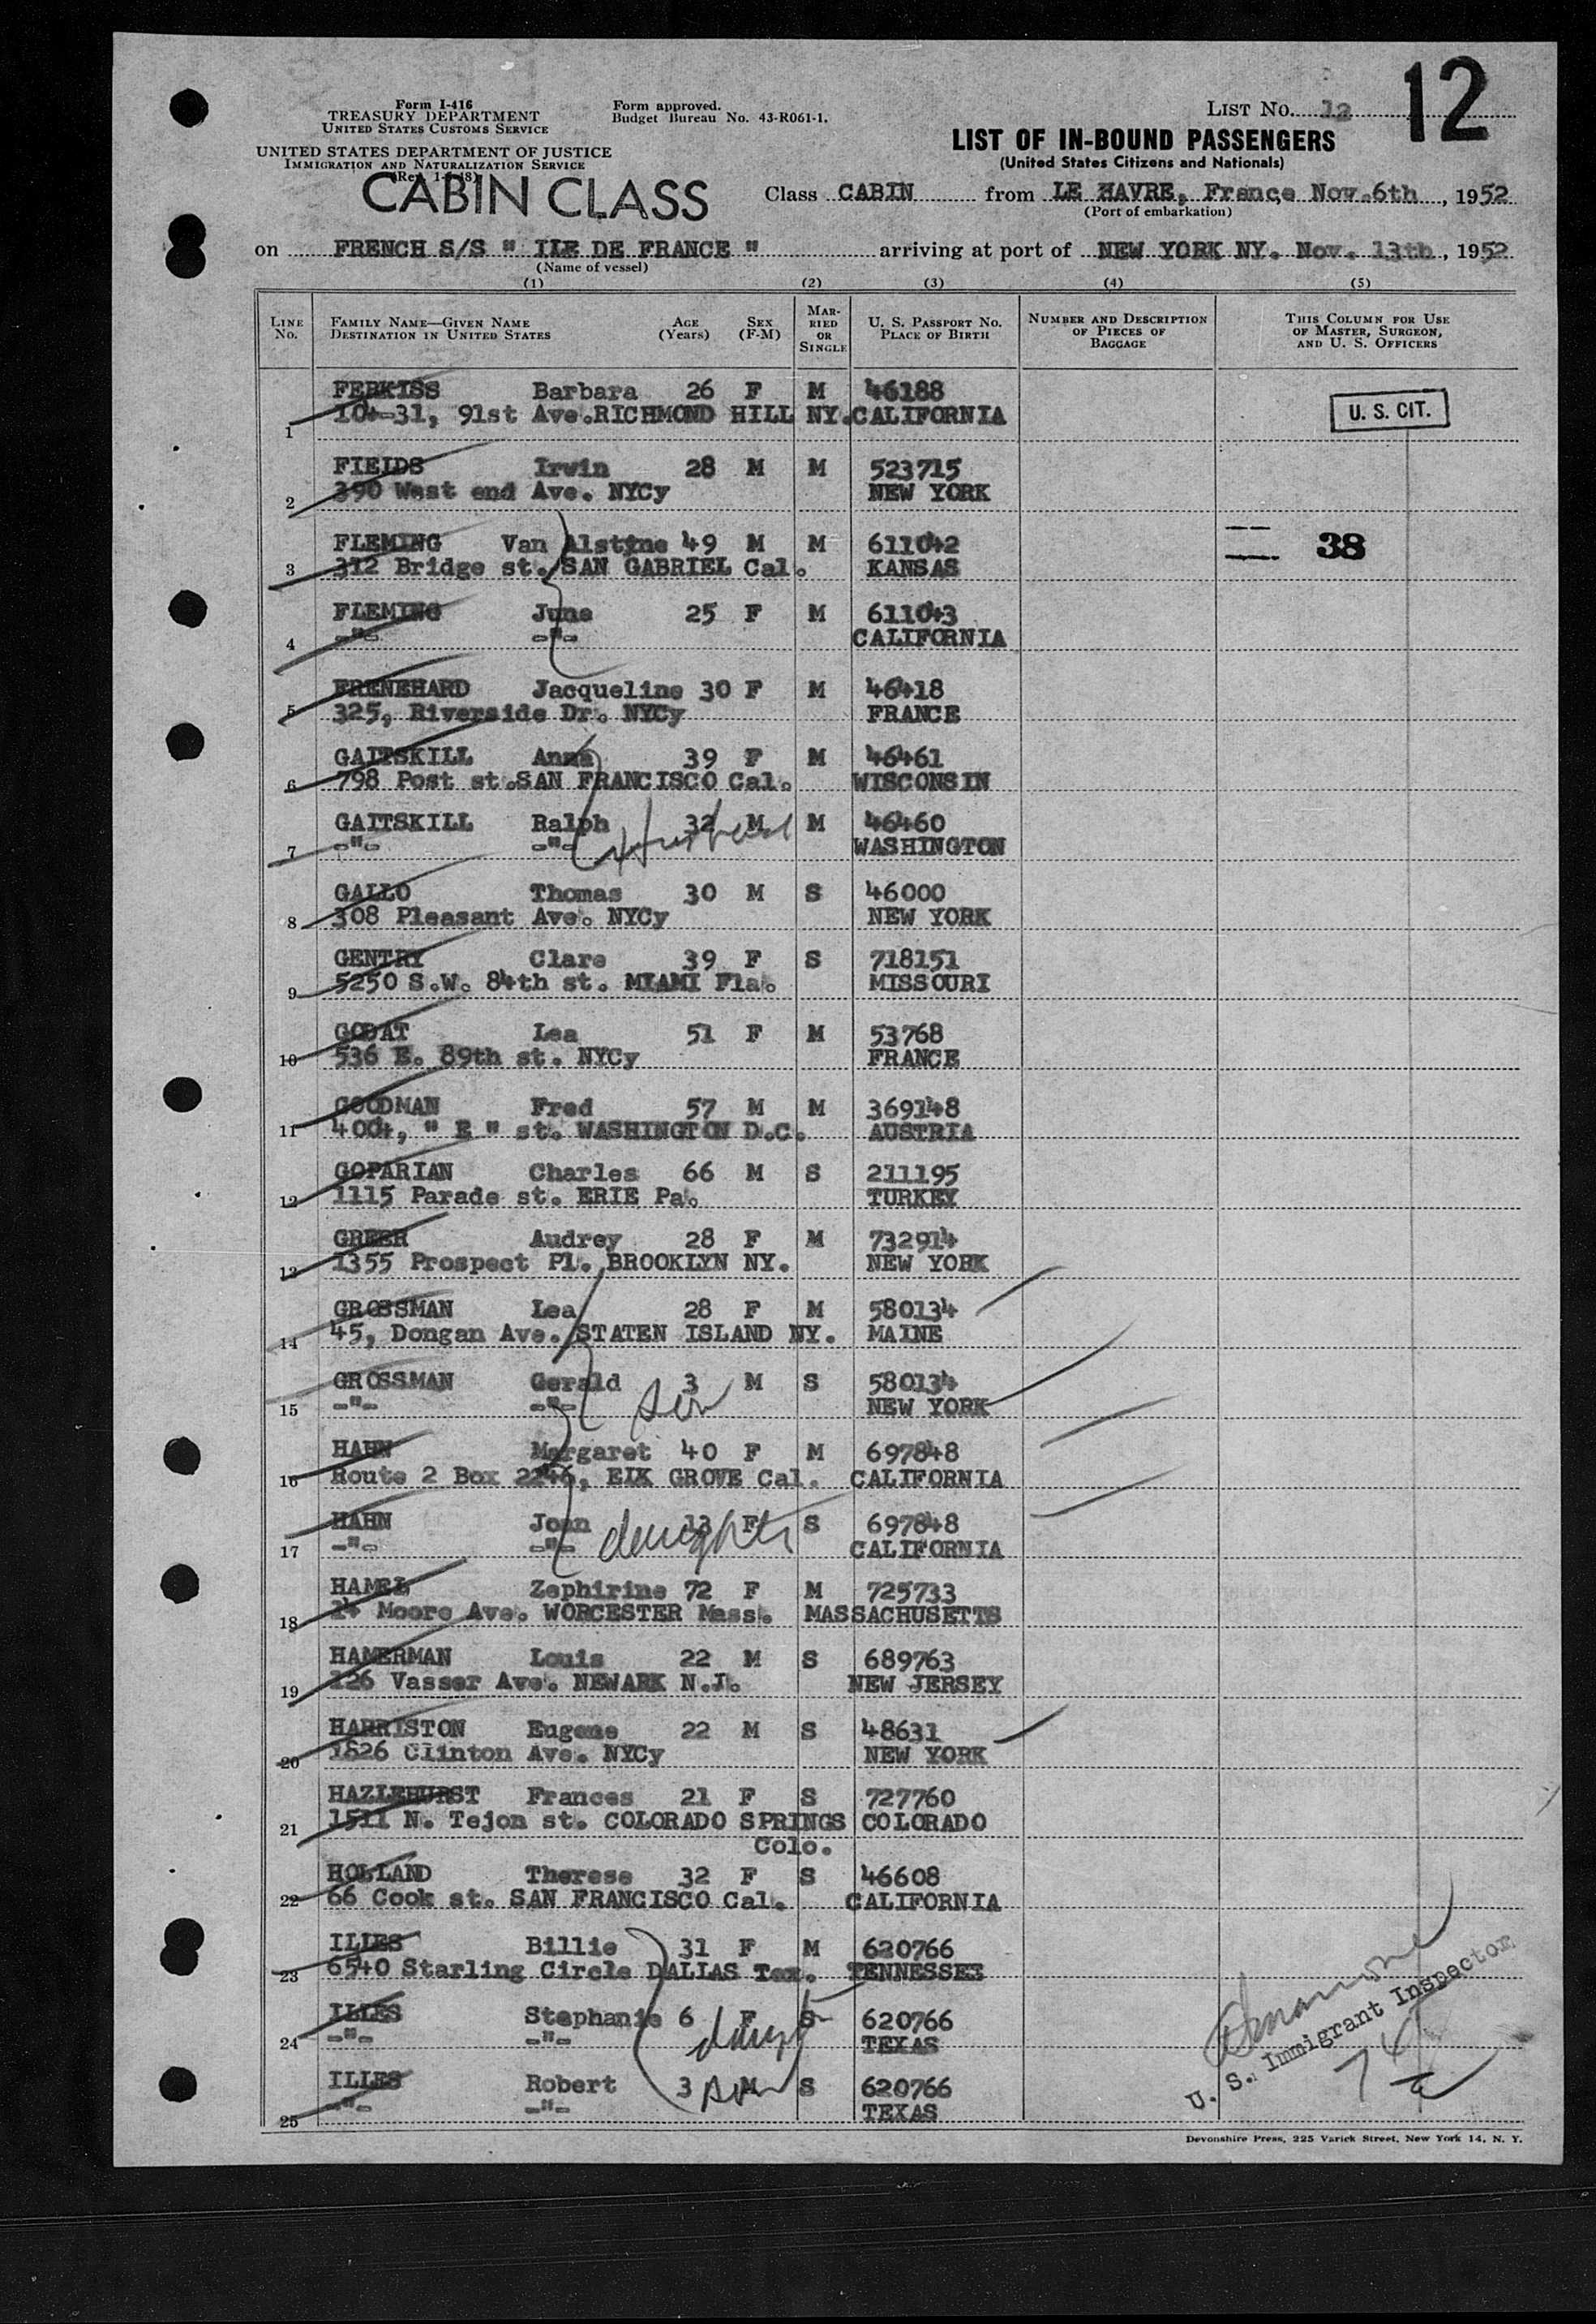 Form I-416
TREASURY DEPARTMENT
UNITED STATES CUSTOMS SERVICE
UNITED STATES DEPARTMENT OF JUSTICE
IMMIGRATION AND NATURALIZATION SERVICE
Form approved.
Budget Bureau No. 43-R061-1.
LIST NO. 12
12
LIST OF IN-BOUND PASSENGERS
(United States Citizens and Nationals)
CABIN CLASS
Class CABIN from LE HAVRE, France Nov.6th, 1952
(Port of embarkation)
on FRENCH S/S " ILE DE FRANCE " arriving at port of NEW YORK NY. Nov. 13th, 1952
(Name of vessel)
(1) (2) (3) (4) (5)
LINE NO.
FAMILY NAME—GIVEN NAME
DESTINATION IN UNITED STATES
AGE (Years)
SEX (F-M)
MARRIED OR SINGLE
U. S. PASSPORT NO.
PLACE OF BIRTH
NUMBER AND DESCRIPTION OF PIECES OF BAGGAGE
THIS COLUMN FOR USE OF MASTER, SURGEON, AND U. S. OFFICERS
FERKISS Barbara 26 F M 46188
1 104-31, 91st Ave.RICHMOND HILL NY. CALIFORNIA
U. S. CIT.
FIELDS Irwin 28 M M 523715
2 390 West end Ave. NYCy NEW YORK
FLEMING Van Alstyne 49 M M 611042
3 312 Bridge st. SAN GABRIEL Cal. KANSAS
38
FLEMING June 25 F M 611043
4 -"- -"- CALIFORNIA
Jacqueline 30 F M 46418
5 325, Riverside Dr. NYCy FRANCE
GAITSKILL Anna 39 F M 46461
6 798 Post st.SAN FRANCISCO Cal. WISCONSIN
GAITSKILL Ralph 32 M M 46460
Husband
7 -"- -"- WASHINGTON
GALLO Thomas 30 M S 46000
8 308 Pleasant Ave. NYCy NEW YORK
GENTRY Clare 39 F S 718151
9 5250 S.W. 84th st. MIAMI Fla. MISSOURI
GODAT Lea 51 F M 53768
10 536 E. 89th st. NYCy FRANCE
GOODMAN Fred 57 M M 369148
11 4004, " E " st. WASHINGTON D.C. AUSTRIA
GOPARIAN Charles 66 M S 211195
12 1115 Parade st. ERIE Pa. TURKEY
GREER Audrey 28 F M 732914
13 1355 Prospect Pl. BROOKLYN NY. NEW YORK
GROSSMAN Lea 28 F M 580134
14 45, Dongan Ave. STATEN ISLAND NY. MAINE
GROSSMAN Gerald 3 M S 580134
son
15 -"- -"- NEW YORK
HAHN Margaret 40 F M 697848
16 Route 2 Box 2246, ELK GROVE Cal. CALIFORNIA
HAHN Joan 13 F S 697848
daughter
17 -"- -"- CALIFORNIA
HAMEL Zephirine 72 F M 725733
18 14 Moore Ave. WORCESTER Mass. MASSACHUSETTS
HAMERMAN Louis 22 M S 689763
19 126 Vasser Ave. NEWARK N.J. NEW JERSEY
HARRISTON Eugene 22 M S 48631
20 1826 Clinton Ave. NYCy NEW YORK
HAZLEHURST Frances 21 F S 727760
21 1511 N. Tejon st. COLORADO SPRINGS COLORADO
Colo.
HOLLAND Therese 32 F S 46608
22 66 Cook st. SAN FRANCISCO Cal. CALIFORNIA
ILIES Billie 31 F M 620766
23 6540 Starling Circle DALLAS Tex. TENNESSEE
ILIES Stephanie 6 F S 620766
24 -"- -"- TEXAS
ILIES Robert 3 M S 620766
son
25 -"- -"- TEXAS
U. S. Immigrant Inspector
Devonshire Press, 225 Varick Street, New York 14, N. Y.